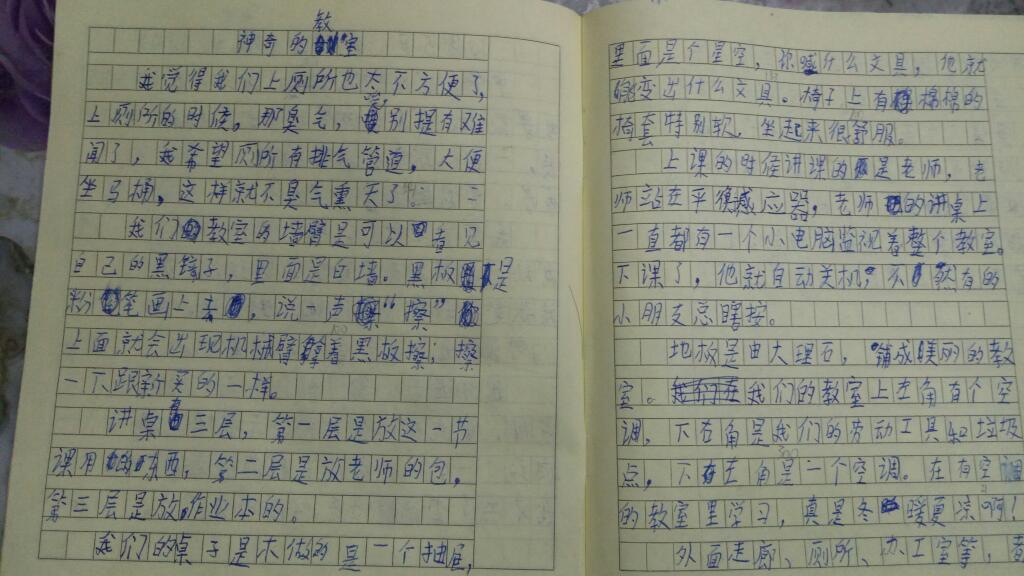 神奇的教室
我觉得我们上厕所也太不方便了,
上厕所的时候,那臭气,别提有难
闻了,我希望厕所有排气管道,大便
坐马桶,这样就不臭气熏天了。
我们教室的墙壁是可以看见
自己的黑镜子,里面是白墙。黑板是
粉笔画上去,说一声“擦”
上面就会出现机械臂拿着黑板擦;擦
一下跟新买的一样。
讲桌有三层,第一层是放这一节
课用的东西,第二层是放老师的包,
第三层是放作业本的。
我们的桌子是木做的是一个抽屉,
里面是个星空,你喊什么文具,他就
会变出什么文具。椅子上有棉棉的
椅套特别软,坐起来很舒服。
上课的时候讲课的是老师,老
师站在平很感应器,老师的讲桌上
一直都有一个小电脑监视着整个教室。
下课了,他就自动关机,不然有的
小朋友总瞎按。
地板是由大理石,铺成美丽的教
室。我们的教室上左角有个空
调,下右角是我们的劳动工具和垃圾
点,下左角是一个空调。在有空调
的教室里学习,真是冬暖夏凉啊!
外面走廊、厕所、办工室等,